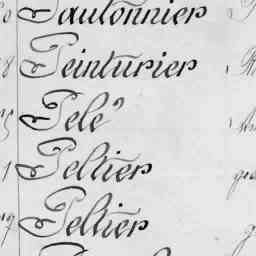 Pautonnier
8 Peinturier
Pelé
1 Peltier
Peltier